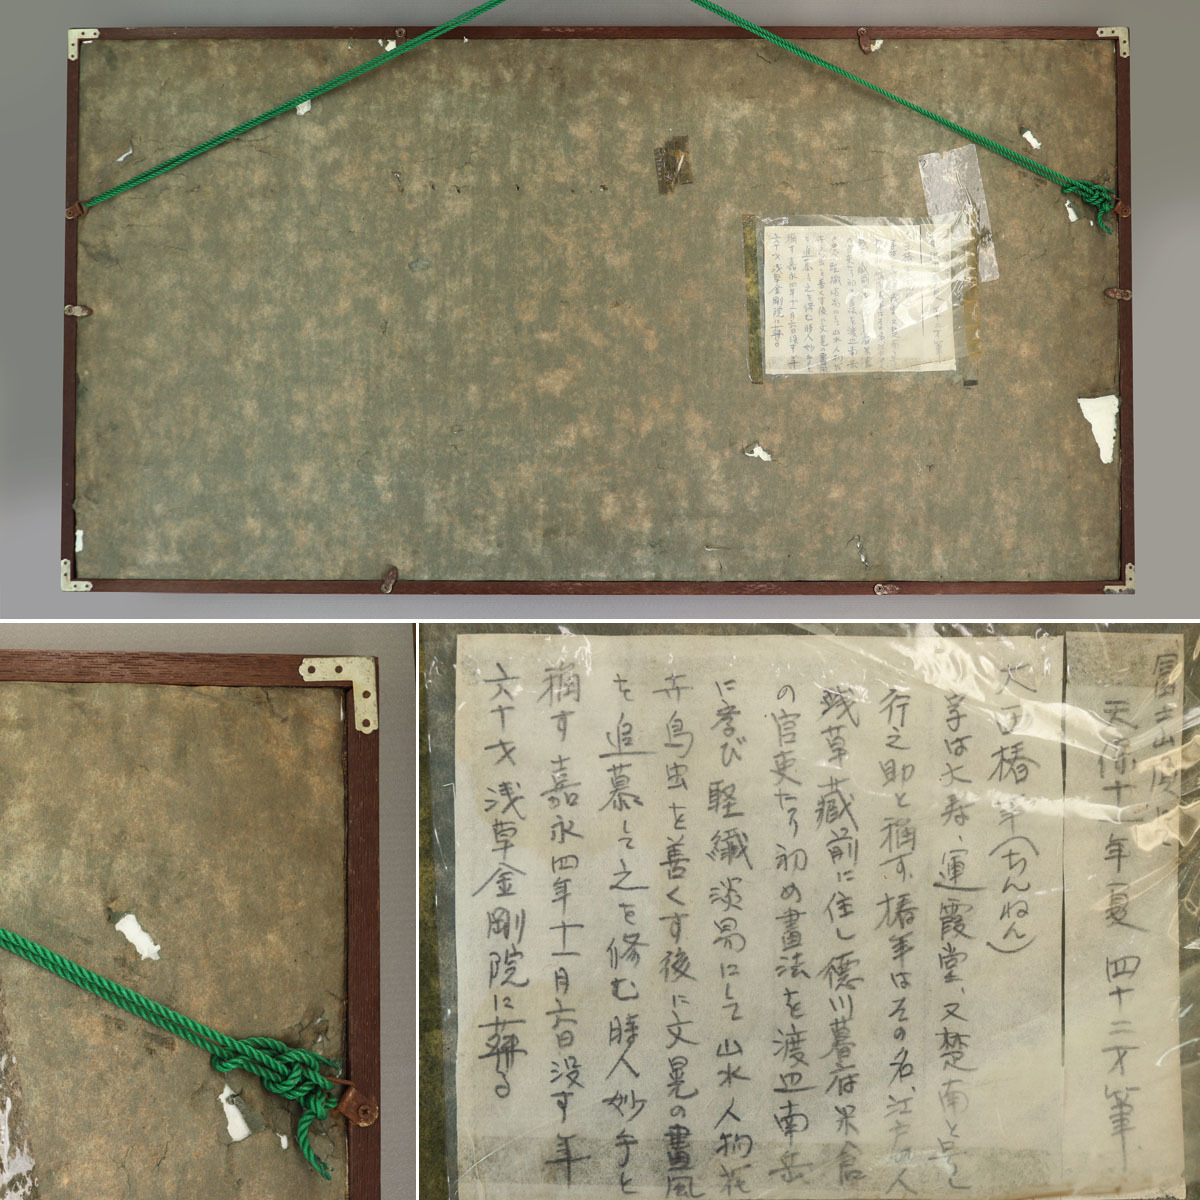 富士山
天保十一年夏 四十三才筆
大西椿年(ちんねん)
字は大寿、運霞堂、又楚南と号し
行之助と稱す、椿年はその名、江戸の人
浅草蔵前に住し徳川幕府米倉
の官吏たり初め畫法を渡辺南岳
に学び軽纖淡易にして山水人物花
卉鳥虫を善くす後に文晃の畫風
を追慕して之を修む時人妙手と
稱す嘉永四年十一月六日没す年
六十才浅草金剛院に葬る